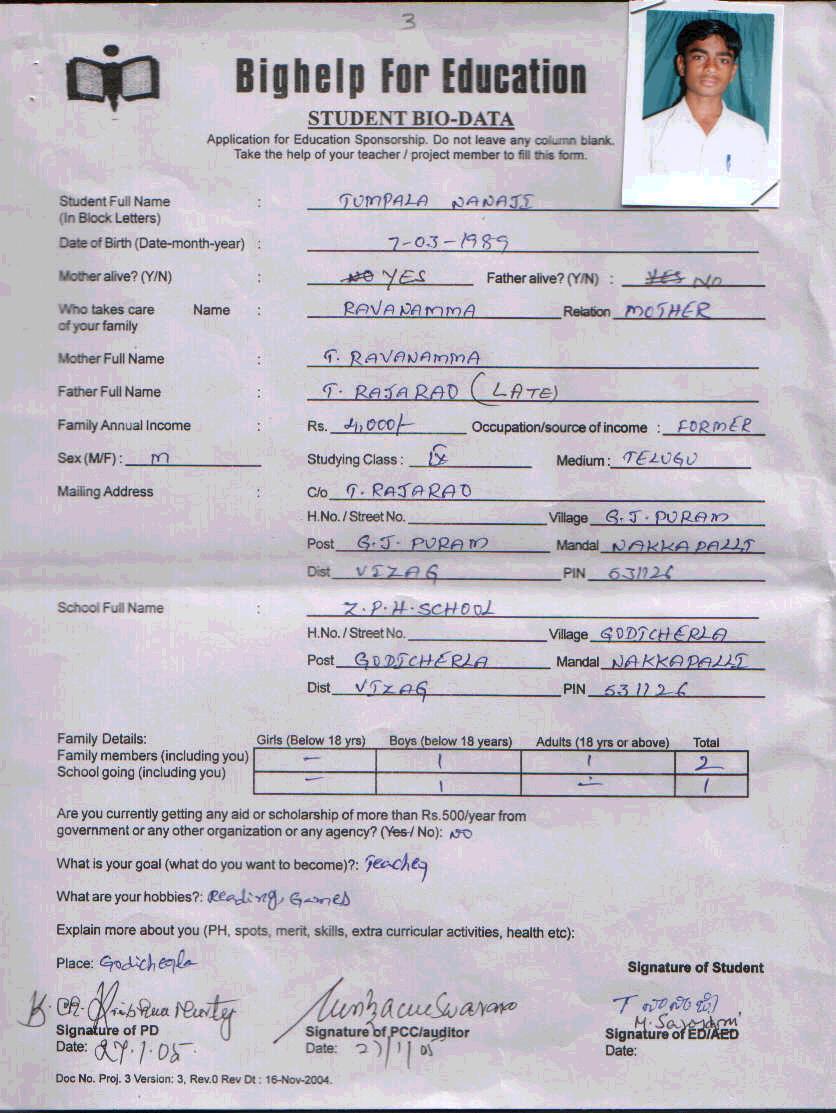 3
Bighelp For Education
STUDENT BIO-DATA
Application for Education Sponsorship. Do not leave any column blank.
Take the help of your teacher / project member to fill this form.
Student Full Name : TUMPALA NANAJI
(In Block Letters)
Date of Birth (Date-month-year) : 7-03-1989
Mother alive? (Y/N) : NO YES Father alive? (Y/N) : YES NO
Who takes care Name : RAVANAMMA Relation MOTHER
of your family
Mother Full Name : T. RAVANAMMA
Father Full Name : T. RAJARAO (LATE)
Family Annual Income : Rs. 4,000/- Occupation/source of income : FORMER
Sex (M/F) : M Studying Class : IX Medium : TELUGU
Mailing Address : C/o T. RAJARAO
H.No. / Street No. Village G.J. PURAM
Post G.J. PURAM Mandal NAKKAPALLI
Dist VIZAG PIN 531126
School Full Name : Z.P.H. SCHOOL
H.No. / Street No. Village GODICHERLA
Post GODICHERLA Mandal NAKKAPALLI
Dist VIZAG PIN 531126
Family Details: Girls (Below 18 yrs) Boys (below 18 years) Adults (18 yrs or above) Total
Family members (including you) - 1 1 2
School going (including you) - 1 - 1
Are you currently getting any aid or scholarship of more than Rs.500/year from
government or any other organization or any agency? (Yes/ No): NO
What is your goal (what do you want to become)?: Teacher
What are your hobbies?: Reading, Games
Explain more about you (PH, spots, merit, skills, extra curricular activities, health etc):
Place: Godicherla
Signature of Student
K. Ch. Krishna Murty
M. Sarojani
Signature of PD Signature of PCC/auditor Signature of ED/AED
Date: 27.1.05 Date: 27/1/05 Date:
Doc No. Proj. 3 Version: 3, Rev.0 Rev Dt : 16-Nov-2004.